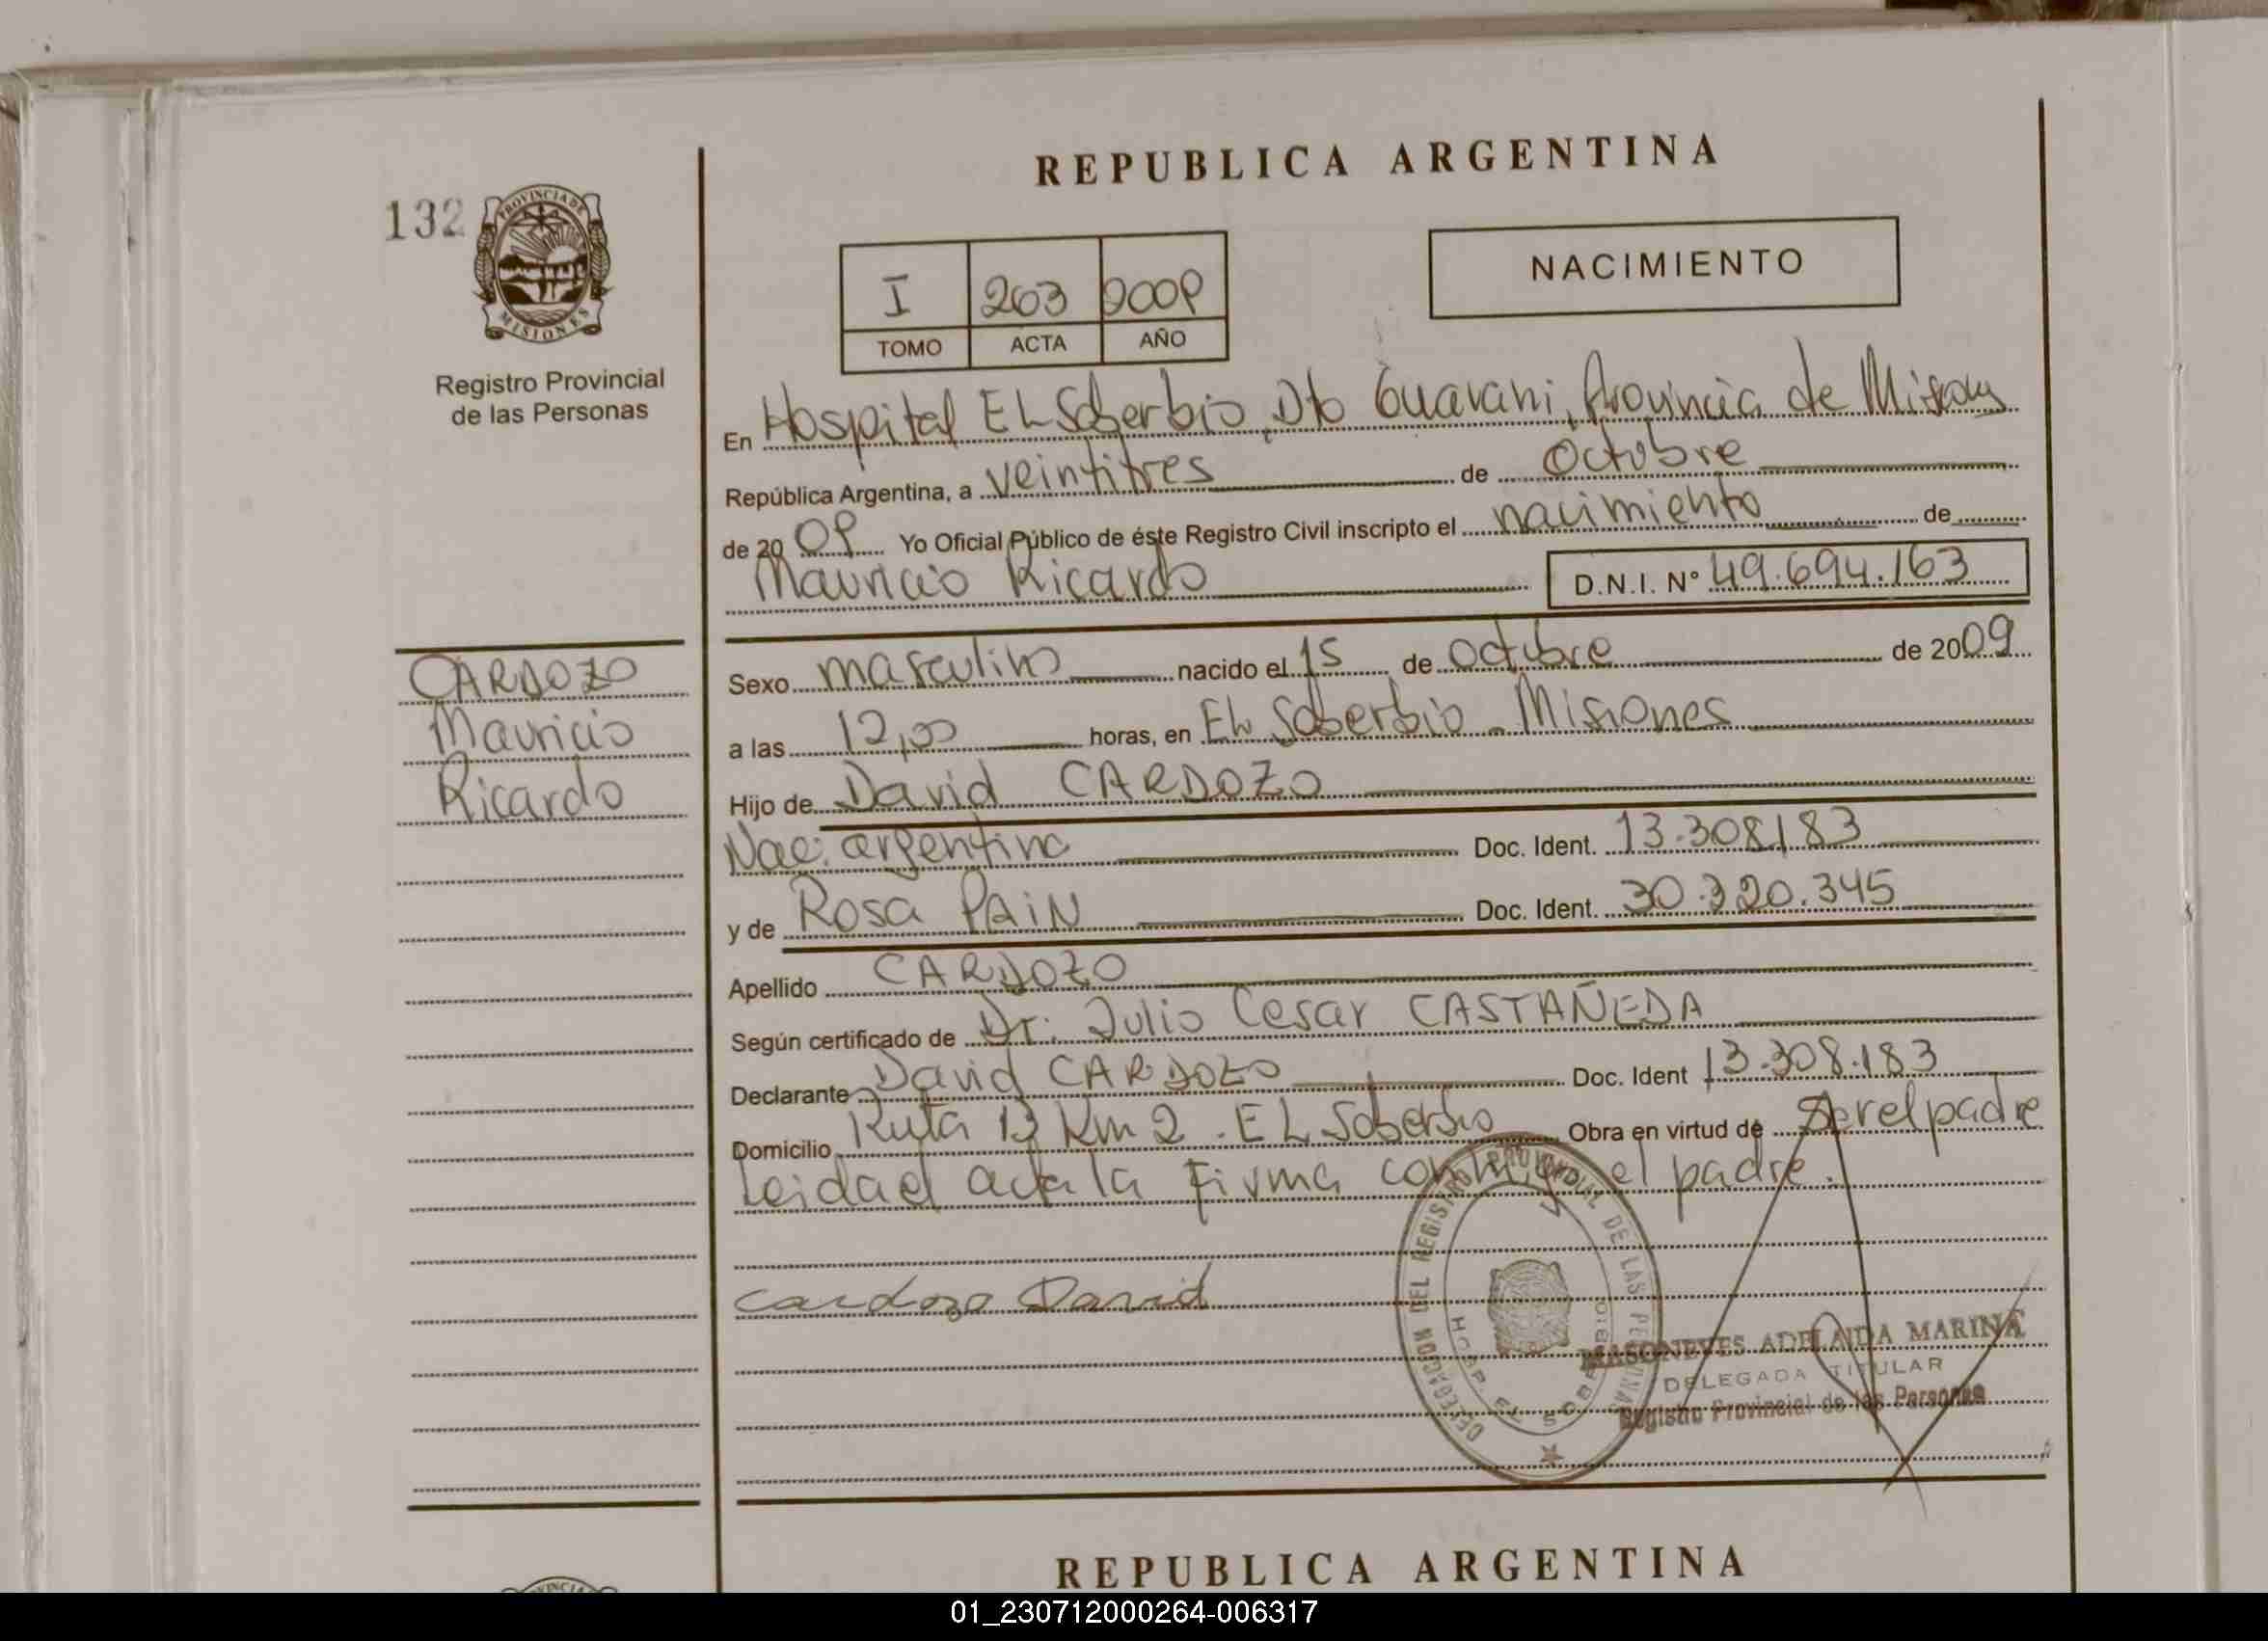 REPUBLICA ARGENTINA
132
PROVINCIA DE
MISIONES
Registro Provincial
de las Personas
I 263 2009
TOMO ACTA AÑO
NACIMIENTO
En Hospital EL Soberbio, Dto Guarani, Provincia de Misiones
República Argentina, a veintitres de Octubre
de 2009 Yo Oficial Público de éste Registro Civil inscripto el nacimiento de
Mauricio Ricardo D.N.I. N° 49.694.163
CARDOZO
Mauricio
Ricardo
Sexo masculino nacido el 15 de octubre de 2009
a las 12,00 horas, en EL Soberbio - Misiones
Hijo de David CARDOZO
Nac. argentina Doc. Ident. 13.308.183
y de Rosa PAiN Doc. Ident. 30.320.345
Apellido CARDOZO
Según certificado de Dr. Julio Cesar CASTAÑEDA
Declarante David CARDOZO Doc. Ident 13.308.183
Domicilio Ruta 13 Km 2 - EL Soberbio Obra en virtud de ser el padre
Leida el acta la firma conmigo el padre.
Cardozo David
DELEGACION DEL REGISTRO PROVINCIAL DE LAS PERSONAS
HOSP. EL SOBERBIO
ADELAIDA MARINA
DELEGADA TITULAR
Registro Provincial de las Personas
REPUBLICA ARGENTINA
01_230712000264-006317